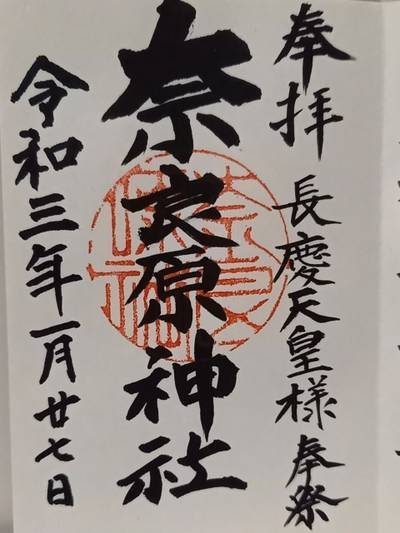 奉拝 長慶天皇様奉祭
奈良原神社
令和三年一月廿七日